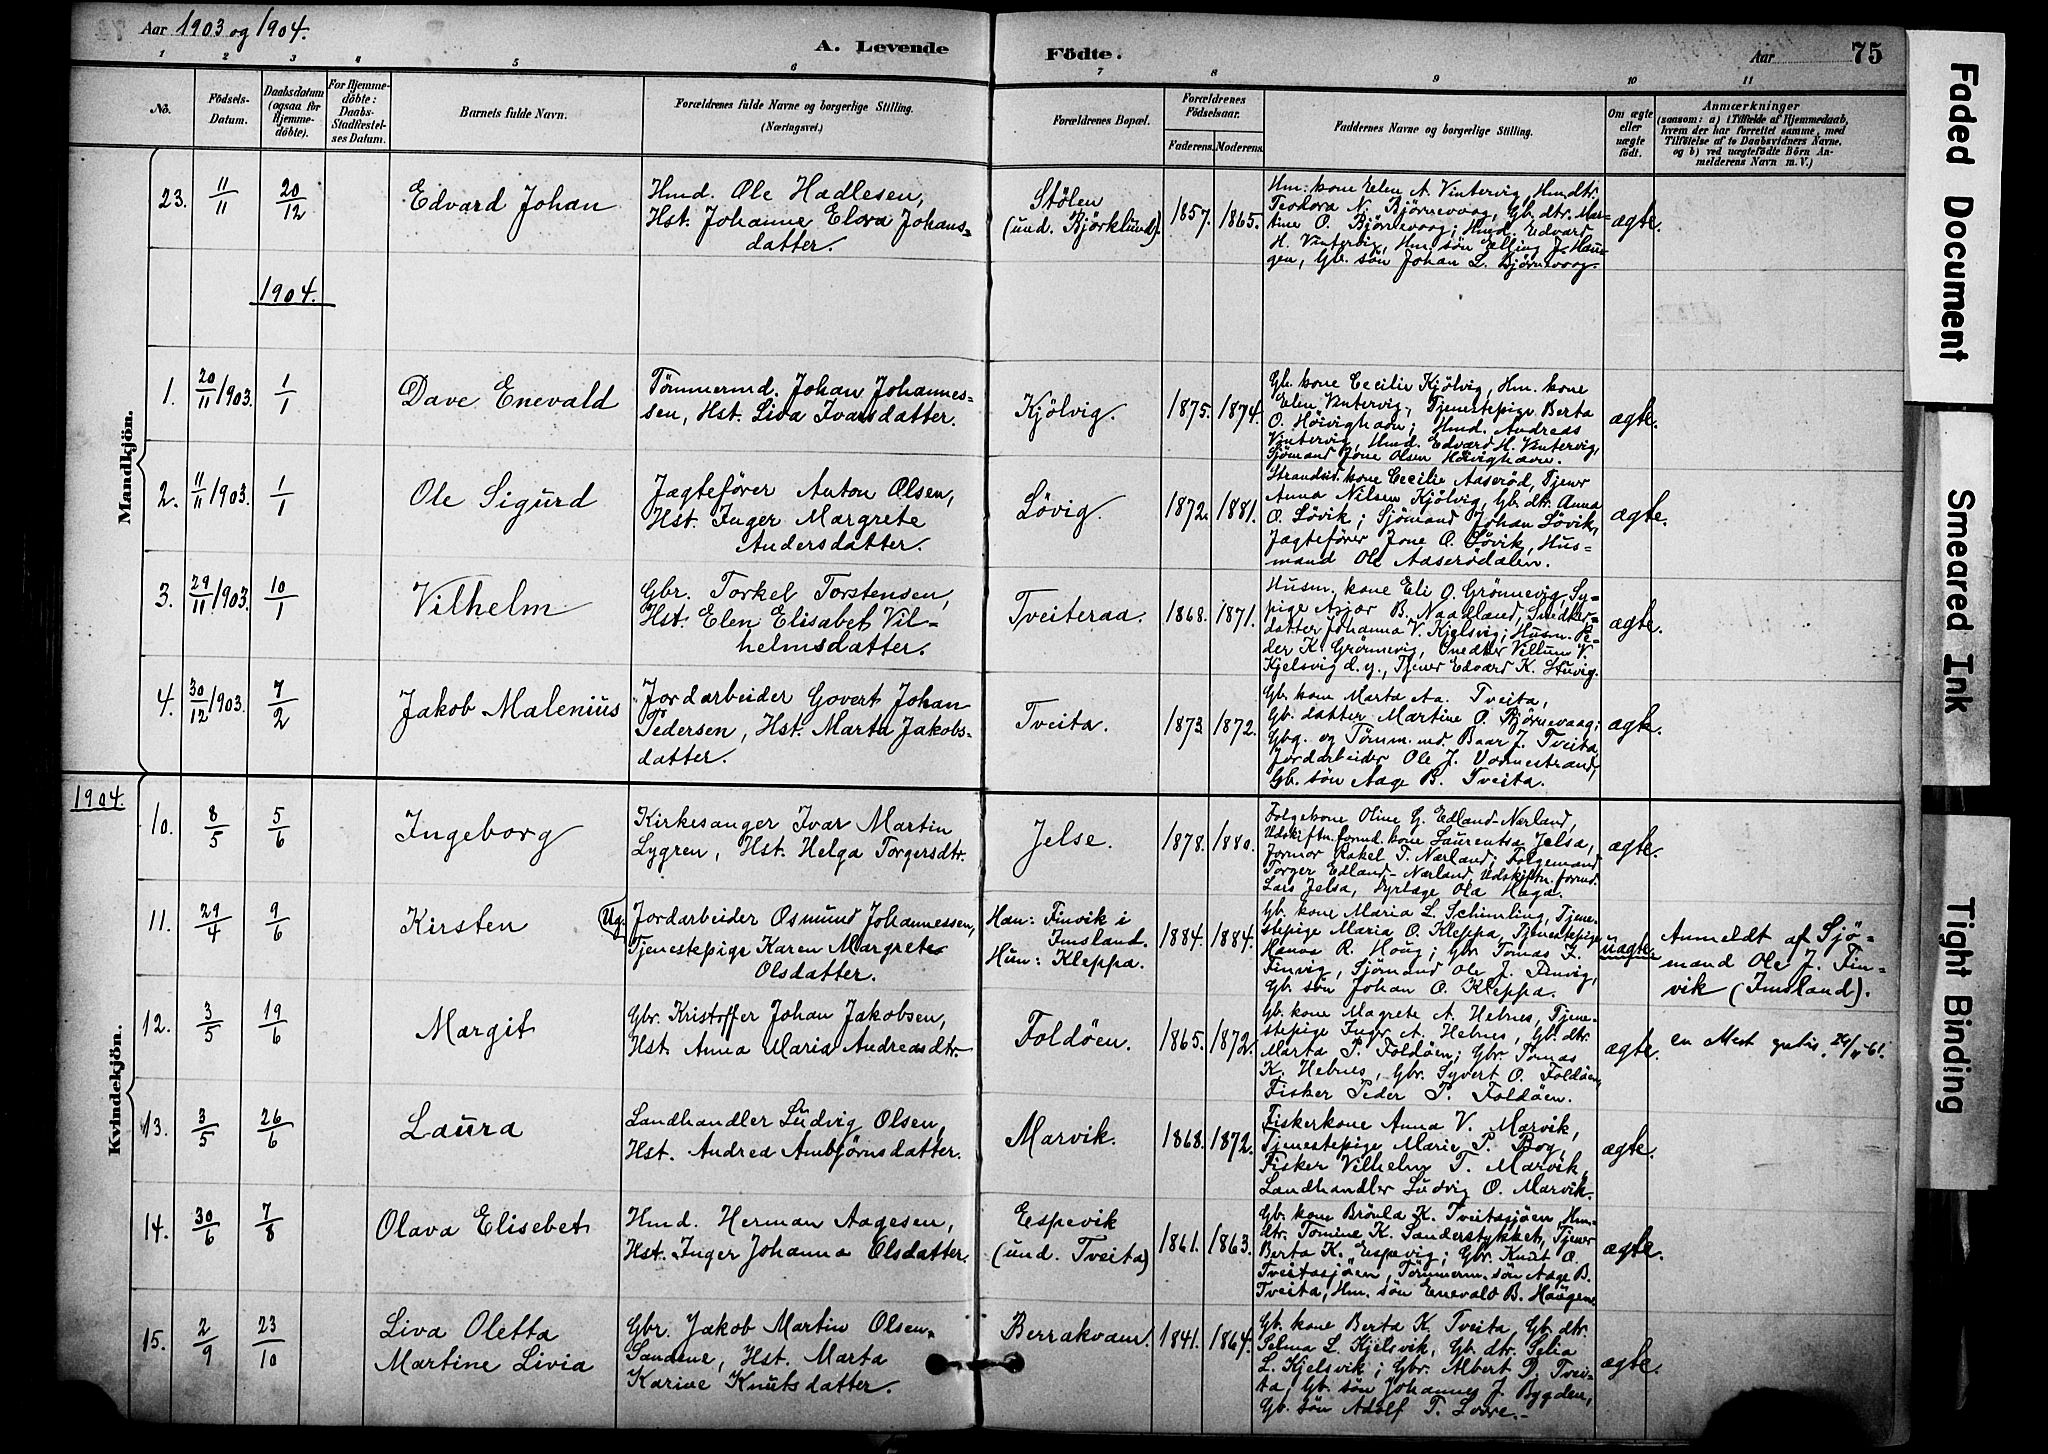 Aar 1903 og 1904.
A. Levende Födte.
Aar 75
1 2 3 4 5 6 7 8 9 10 11
No.
Födsels-
Datum.
Daabsdatum
(ogsaa for
Hjemme-
döbte).
For Hjemme-
döbte:
Daabs-
Stadfæstel-
ses Datum.
Barnets fulde Navn.
Forældrenes fulde Navne og borgerlige Stilling.
(Næringsvei.)
Forældrenes Bopæl.
Forældrenes
Födselsaar.
Faderens. Moderens.
Faddernes Navne og borgerlige Stilling.
Om ægte
eller
uægte
födt.
Anmærkninger
(saasom: a) i Tilfælde af Hjemmedaab,
hvem der har forrettet samme, med
Tilföielse af to Daabsvidners Navne.
og b) ved uægtefödte Börn An-
melderens Navn m. V.)
Mandkjön.
23. 11/11 20/12 Edvard Johan
Hmd. Ole Hadlesen,
Hst. Johanne Elora Johans-
datter.
Stölen
(und. Björklund).
1857. 1865.
Hm: kone Elen A. Vintervig, Hm dtr.
Teodora N. Bjørnevaag, Gb. dtr. Mar-
tine O. Bjørnevaag; Hmd. Edvard
H. Vintervig, Hm. søn Elling J. Hau-
gen, Gb. søn Johan L. Bjørnevaag.
ægte.
1904.
1. 20/11 1903. 1/1 Dave Enevald
Tømmermd. Johan Johannes-
sen, Hst. Liva Ivarsdatter.
Kjölvig.
1875. 1874.
Gb. kone Cecilie Kjölvig, Hm. kone
Elen Vintervig, Tjenestepige Berta
O. Höivighavn; Hmd. Andreas
Vintervig, Hmd. Edvard H. Vintervig,
Sjömand Jone Olsen Höivighavn.
ægte.
2. 11/11 1903. 1/1 Ole Sigurd
Jægtefører Anton Olsen,
Hst. Inger Margrete
Andersdatter.
Lövig.
1872. 1881.
Strandsid. kone Cecilie Aaseröd, Tjener
Anna Nilsen Kjölvig, Gb. dtr. Anna
O. Lövik; Sjömand Johan Lövik,
Jægtefører Jone O. Lövik, Hus-
mand Ole Aaserödalen.
ægte.
3. 29/11 1903. 10/1 Vilhelm
Gbr. Torkel Torstensen,
Hst. Elen Elisabet Vil-
helmsdatter.
Tveiteraa.
1868. 1871.
Husm. kone Eli O. Grönnevig, Sy-
pige Asjør B. Naadland, Snedker-
datter Johanna V. Kjelsvig; Husm. Pe-
der K. Grønnevig, Snedker Villum V.
Kjelsvig d.y., Tjener Edvard K. Stuvig.
ægte.
4. 30/12 1903. 7/2 Jakob Malenius
Jordarbeider Govert Johan
Pedersen, Hst. Marta Jakobs-
datter.
Tveita.
1873. 1872.
Gb. kone Marta Aa. Tveita,
Gb. datter Martine O. Bjørnevaag;
Gbg. og Tømm. md. Baar J. Tveita,
Jordarbeider Ole J. Vormestrand,
Gb. søn Aage B. Tveita.
ægte.
1904.
Kvindekjön.
10. 8/5 5/6 Ingeborg
Kirkesanger Ivar Martin
Lygren, Hst. Helga Torgersdtr.
Jelse.
1878. 1880.
Folgekone Oline G. Edland-Nærland,
Udskiftn. formd. kone Laurentsa Jelsa,
Jormor Rakel T. Nærland; Folgemand
Torger Edland-Nærland, Udskiftn. formd.
Lars Jelsa, Dyrlæge Ola Haga.
ægte.
11. 29/4 9/6 Kirsten
Ug. Jordarbeider Osmund Johannessen,
Tjenestepige Karen Margrete
Olsdatter.
Han: Finvik i
Imsland.
Hun: Kleppa.
1884. 1884.
Gb. kone Maria L. Schimling, Tjene-
stepige Maria O. Kleppa, Tjenestepige
Hanna R. Houg; Gbr. Tomas F.
Finvig, Sjømand Ole J. Finvig,
Gb. søn Johan O. Kleppa.
uægte
Anmeldt af Sjö-
mand Ole J. Fin-
vik (Imsland).
12. 3/5 19/6 Margit
Gbr. Kristoffer Johan Jakobsen,
Hst. Anna Maria Andreasdtr.
Foldöen.
1865. 1872.
Gb. kone Magrete A. Hebnes, Tjene-
stepige Inger A. Hebnes, Gb. dtr.
Marta P. Foldöen; Gbr. Tomas
K. Hebnes, Gbr. Syvert O. Foldöen,
Fisker Peder P. Foldöen.
ægte.
en Attest gratis.
13. 3/5 26/6 Laura
Landhandler Ludvig Olsen,
Hst. Andrea Ambjörnsdatter.
Marvik.
1868. 1872.
Fiskerkone Anna V. Marvik,
Tjenestepige Marie P. Bog,
Fisker Vilhelm T. Marvik,
Landhandler Ludvig O. Marvik.
ægte.
14. 30/6 7/8 Olava Elisebet
Hmd. Herman Aagesen,
Hst. Inger Johanna Olsdatter.
Espevik
(und. Tveita)
1861. 1863.
Gb. kone Brönla K. Tveitasjöen, Hm-
dtr. Tomine K. Sanderstykket, Tjener
Berta K. Espevig; Gbr. Knut O.
Tveitasjöen, Tömmerm. søn Aage B.
Tveita, Hm. søn Enevald B. Haugen.
ægte.
15. 2/9 23/10 Liva Oletta
Martine Livia
Gbr. Jakob Martin Olsen
Sandene, Hst. Marta
Karine Knutsdatter.
Berrakvam.
1841. 1864.
Gb. kone Berta K. Tveita, Gb. dtr.
Selma L. Kjelsvik, Gb. dtr. Selia
L. Kjelsvik; Gbr. Albert D. Tvei-
ta, Gb. søn Johannes J. Bygden,
Gb. søn Adolf T. Lovre.
ægte.
Faded Document
Smeared Ink
Tight Binding